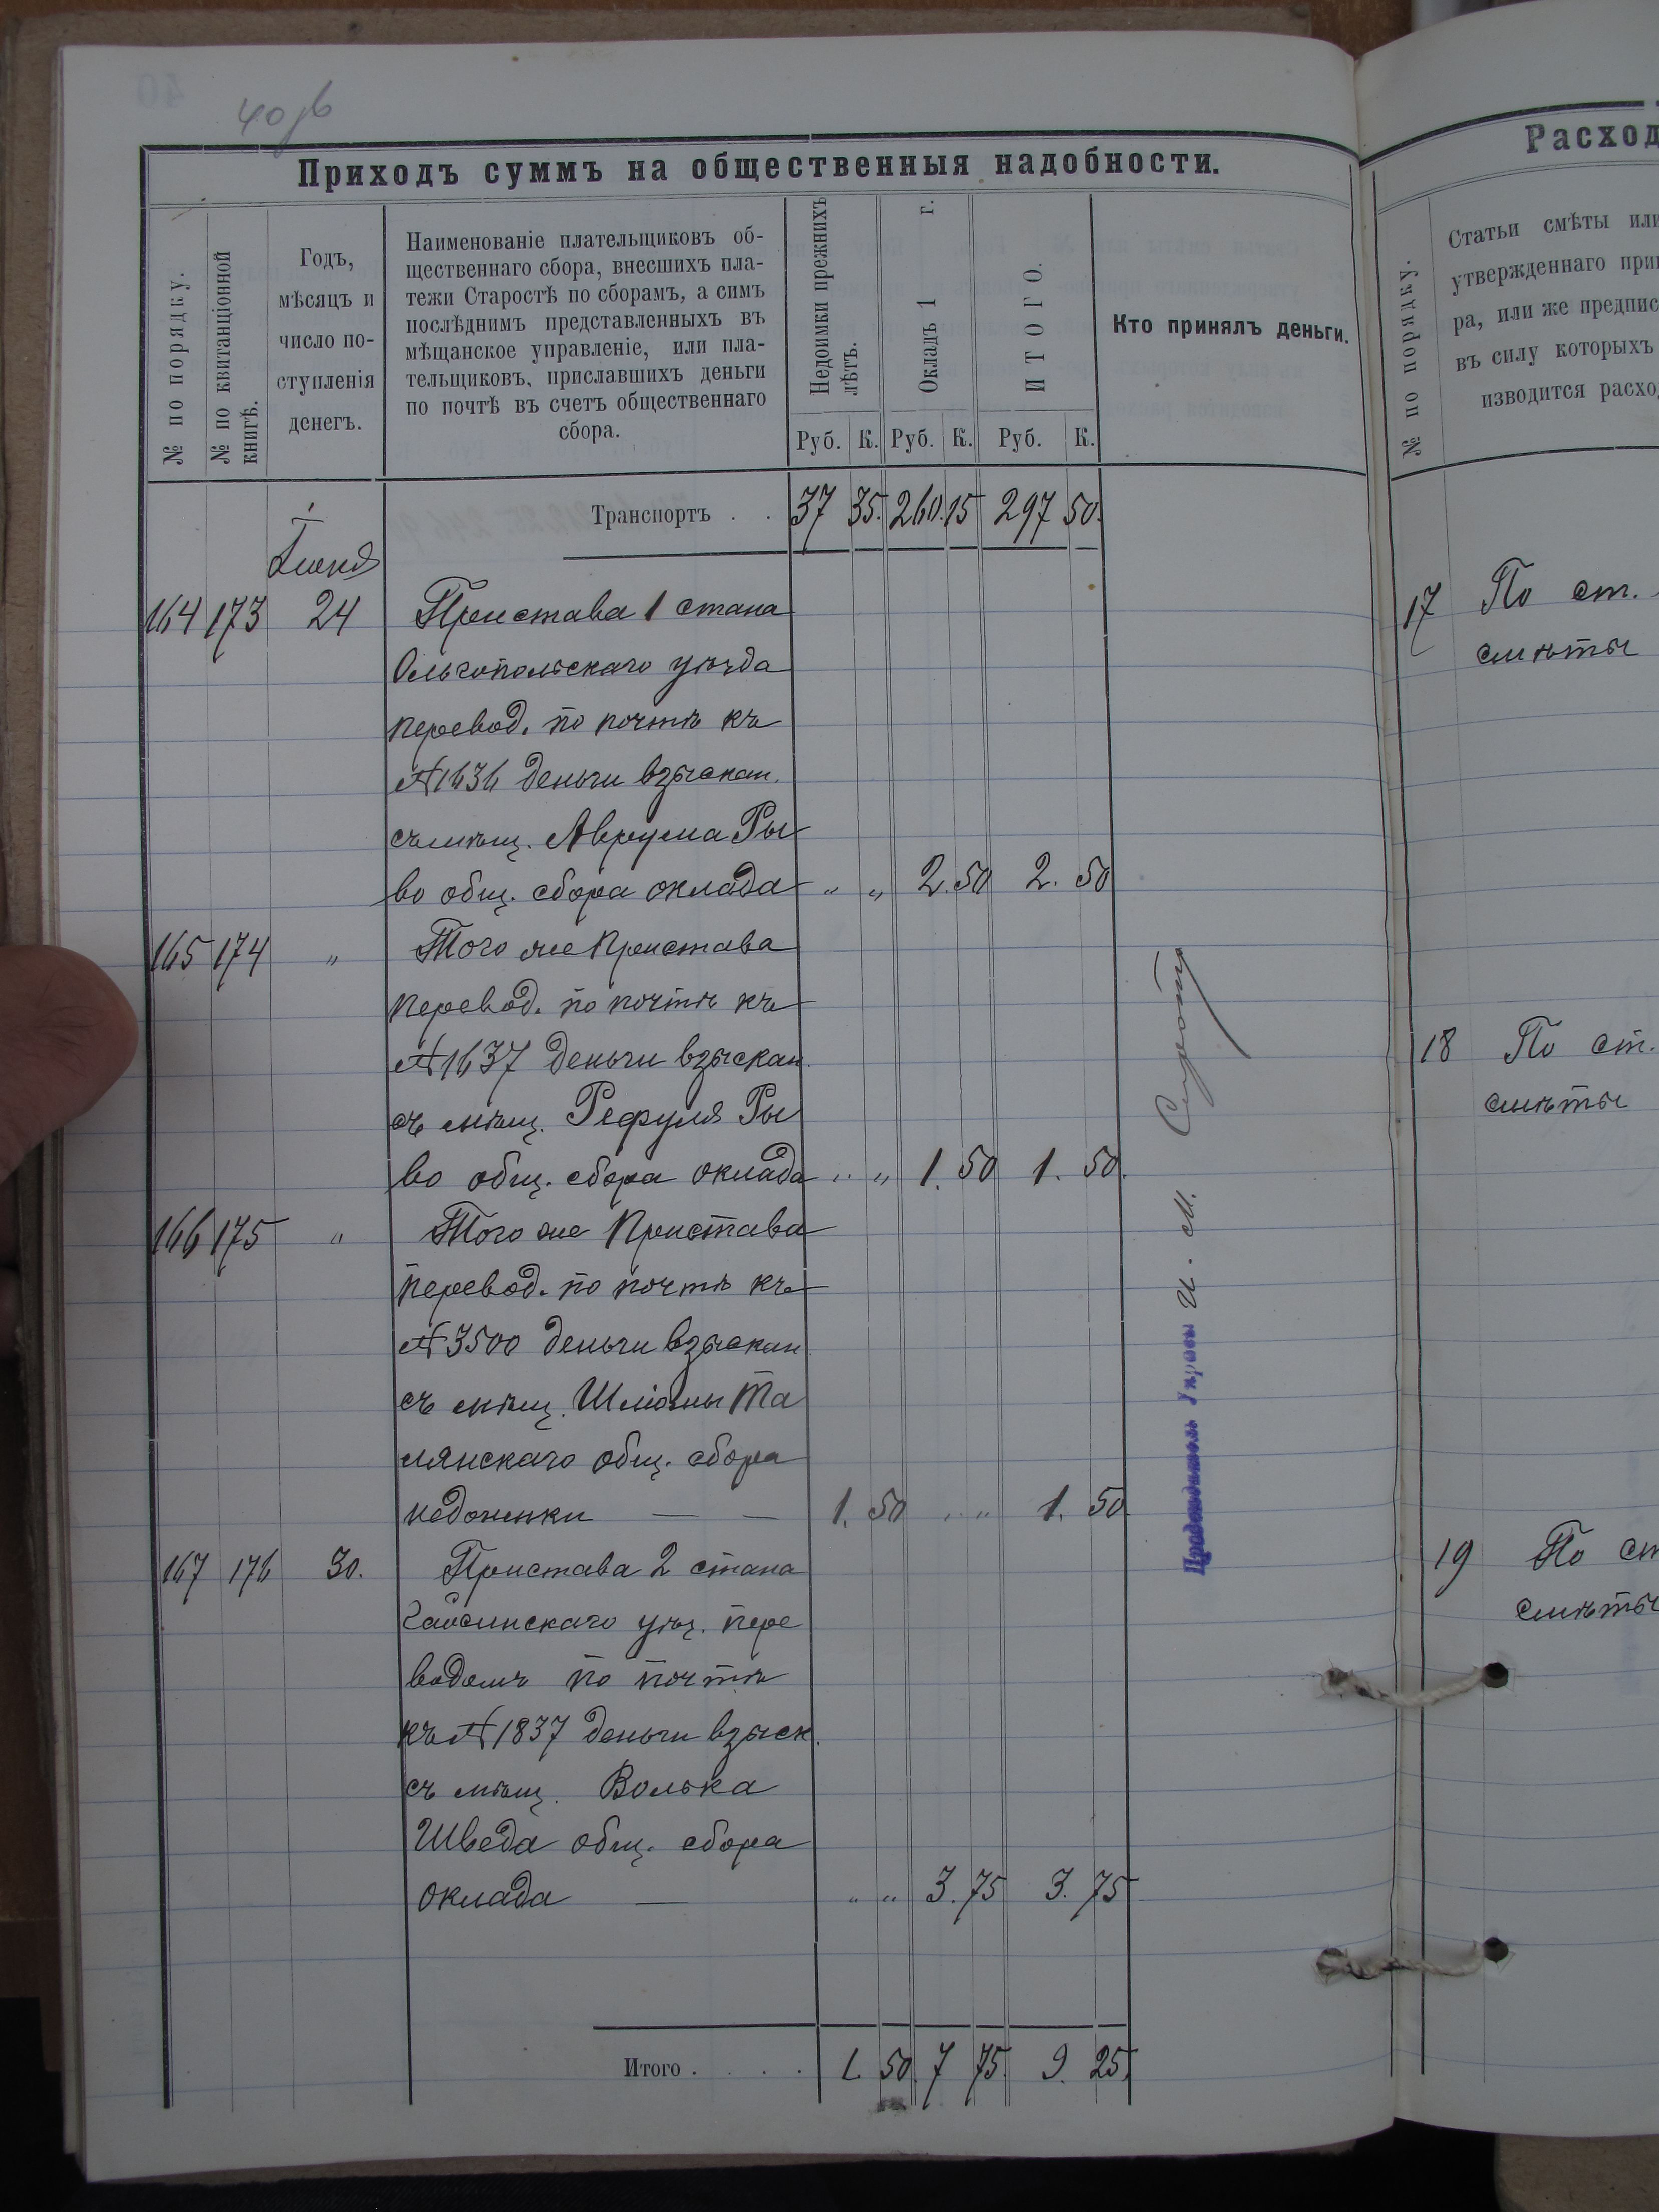 40 об
Приходъ суммъ на общественныя надобности.
№ по порядку.
№ по квитанціонной книгѣ.
Годъ,
мѣсяцъ и
число по-
ступленія
денегъ.
Наименованіе плательщиковъ об-
щественнаго сбора, внесшихъ пла-
тежи Старостѣ по сборамъ, а симъ
послѣднимъ представленныхъ въ
мѣщанское управленіе, или пла-
тельщиковъ, приславшихъ деньги
по почтѣ въ счетъ общественнаго
сбора.
Недоимки прежнихъ лѣтъ.
Окладъ 1 г.
ИТОГО.
Руб. К. Руб. К. Руб. К.
Кто принялъ деньги.
Транспортъ . . 37 35. 260. 15 297 50.
Іюня
164 173 24 Пристава 1 стана
Ольгопольскаго уѣзда
перевод. по почтѣ къ
№ 1636 деньги взыскан.
съ мѣщ. Аврума Ры
во общ. сбора оклада „ „ 2. 50 2. 50
165 174 „ Того же Пристава
перевод. по почтѣ къ
№ 1637 деньги взыскан.
съ мѣщ. Рефуля Ры
во общ. сбора оклада „ „ 1. 50 1. 50.
166 175 „ Того же Пристава
перевод. по почтѣ къ
№ 3500 деньги взыскан.
съ мѣщ. Шліомы Та
лянскаго общ. сбора
недоимки — — 1. 50 „ „ 1. 50.
167 176 30. Пристава 2 стана
Гайсинскаго уѣз. пере
водомъ по почтѣ
къ № 1837 деньги взыск.
съ мѣщ. Волька
Шведа общ. сбора
оклада — „ „ 3. 75 3. 75
Итого . . . . 1. 50. 7 75. 9. 25.
И. М. Сирота
Расход
№ по порядку.
Статьи смѣты или
утвержденнаго при
ра, или же предпис
въ силу которыхъ
изводится расхо
17 По ст.
смѣты
18 По ст.
смѣты
19 По ст
смѣты